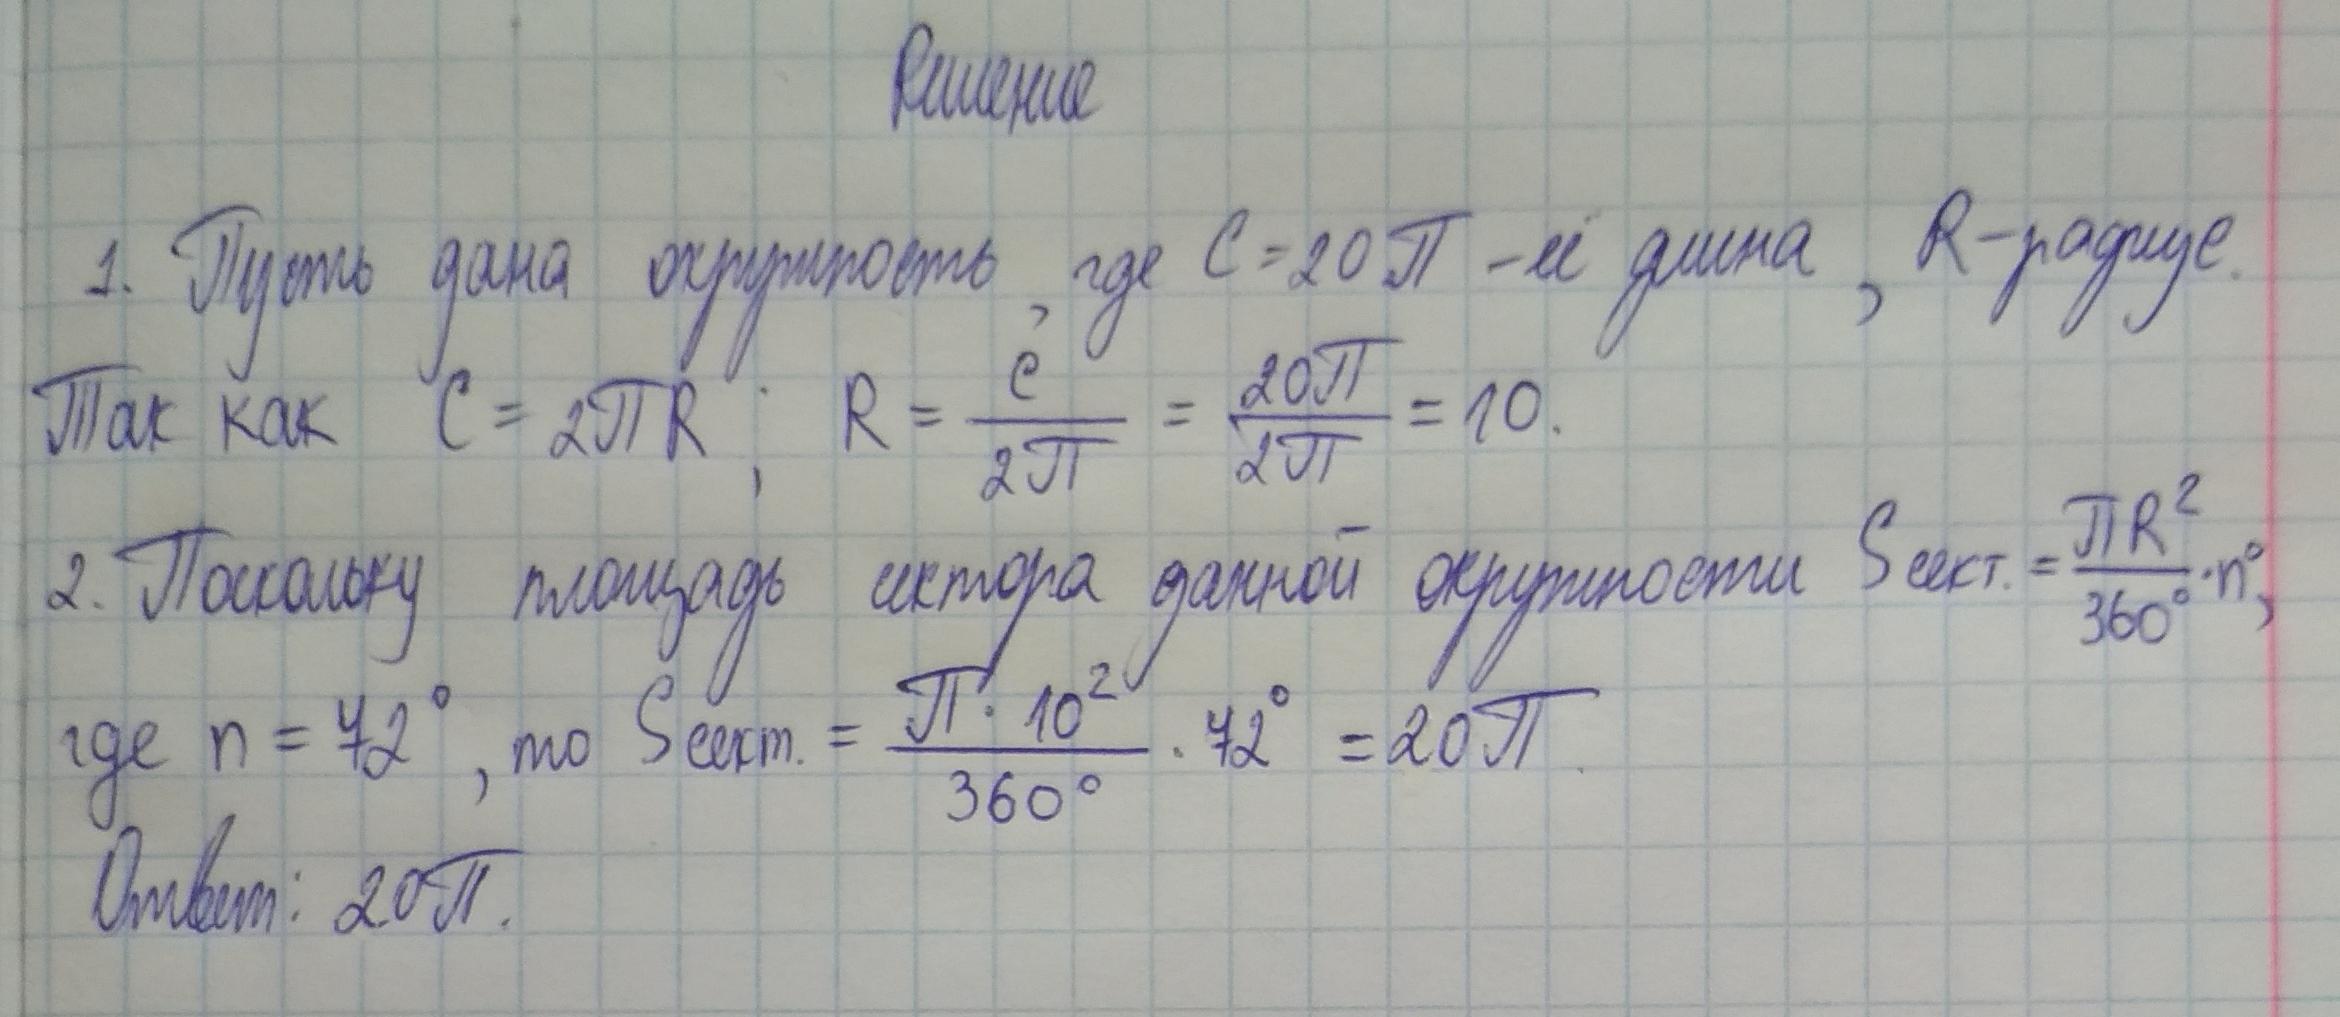 Решение
1. Пусть дана окружность, где C = 20П - её длина, R - радиус.
Так как C = 2ПR; R = C/2П = 20П/2П = 10.
2. Поскольку площадь сектора данной окружности Sсект. = ПR²/360° · n°,
где n = 72°, то Sсект. = П · 10²/360° · 72° = 20П.
Ответ: 20П.